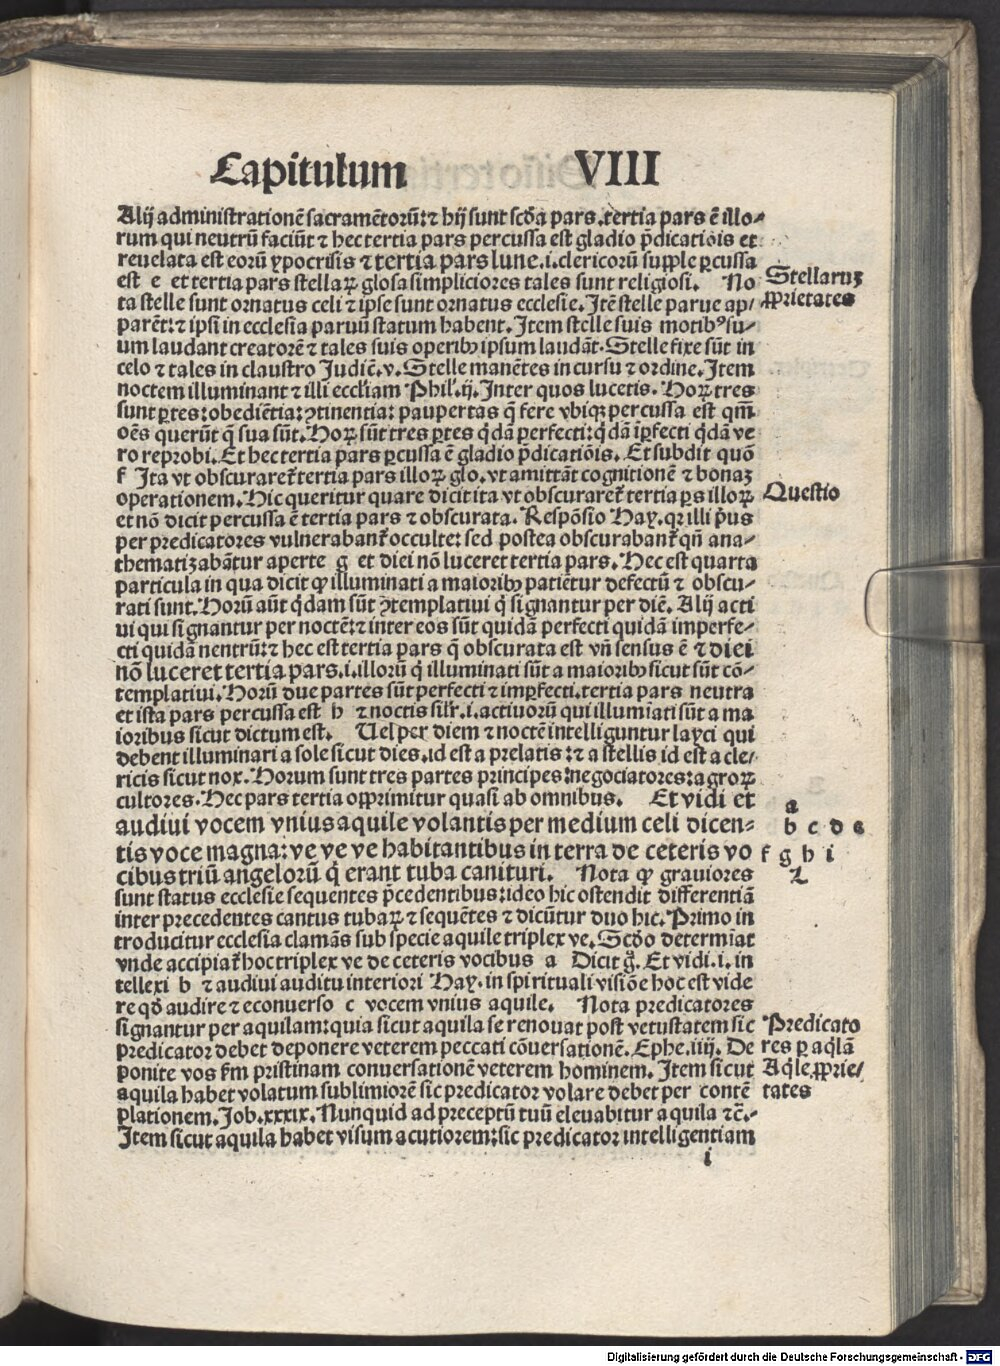 Capitulum VIII
Alij administrationē sacramētorū: ⁊ hij sunt scd̄a pars. tertia pars ē illo⸗
rum qui neutrū faciūt ⁊ hec tertia pars percussa est gladio p̄dicatiōis et
reuelata est eorū ypocrisis ⁊ tertia pars lune .i. clericorū supple ꝑcussa
est e et tertia pars stellaꝝ glosa simpliciores tales sunt religiosi. No
Stellaruꝫ
ꝓprietates
ta stelle sunt ornatus celi ⁊ ipse sunt ornatus ecclesie. Itē stelle parue ap⸗
parēt: ⁊ ipsi in ecclesia paruū statum habent. Item stelle suis motibꝰ su⸗
um laudant creatorē ⁊ tales suis operibꝫ ipsum laudāt. Stelle fixe sūt in
celo ⁊ tales in claustro Judiē. v. Stelle manētes in cursu ⁊ ordine. Item
noctem illuminant ⁊ illi eccl̄iam Phil'. ij. Inter quos lucetis. Hoꝝ tres
sunt ꝑtes: obediētia: ꝯtinentia: paupertas q̄ fere vbiqꝫ percussa est qm̄
oēs querūt q̄ sua sūt. Hoꝝ sūt tres ꝑtes q̄dā perfecti: q̄dā īperfecti q̄dā ve
ro reprobi. Et hec tertia pars ꝑcussa ē gladio p̄dicatiōis. Et subdit quō
f Ita vt obscuraret̄ tertia pars illoꝝ glo. vt amittāt cognitionē ⁊ bonaꝫ
operationem. Hic queritur quare dicit ita vt obscuraret̄ tertia ꝑs illoꝝ
Questio
et nō dicit percussa ē tertia pars ⁊ obscurata. Respōsio Hay. qꝛ illi p̄us
per predicatores vulnerabant̄ occulte: sed postea obscurabant̄ qn̄ ana⸗
thematizabātur aperte g et diei nō luceret tertia pars. Hec est quarta
particula in qua dicit ꝙ illuminati a maioribꝫ patiētur defectū ⁊ obscu⸗
rati sunt. Horū aūt q̄dam sūt ꝯtemplatiui q̄ signantur per diē. Alij acti
ui qui signantur per noctē: ⁊ inter eos sūt quidā perfecti quidā imperfe⸗
cti quidā nentrū: ⁊ hec est tertia pars q̄ obscurata est vn̄ sensus ē ⁊ diei
nō luceret tertia pars .i. illorū q̄ illuminati sūt a maioribꝫ sicut sūt cō⸗
templatiui. Horū due partes sūt perfecti ⁊ imꝑfecti. tertia pars neutra
et ista pars percussa est h ⁊ noctis sil'r .i. actiuorū qui illumīati sūt a ma
ioribus sicut dictum est. Uel per diem ⁊ noctē intelliguntur layci qui
debent illuminari a sole sicut dies. id est a prelatis: ⁊ a stellis id est a cle⸗
ricis sicut nox. Horum sunt tres partes principes: negociatores: agroꝝ
cultores. Hec pars tertia opprimitur quasi ab omnibus. Et vidi et
a
audiui vocem vnius aquile volantis per medium celi dicen⸗
b c d e
tis voce magna: ve ve ve habitantibus in terra de ceteris vo
f g h i
cibus triū angelorū q̄ erant tuba canituri. Nota ꝙ grauiores
2
sunt status ecclesie sequentes p̄cedentibus: ideo hic ostendit differentiā
inter precedentes cantus tubaꝝ ⁊ sequētes ⁊ dicūtur duo hic. Primo in
troducitur ecclesia clamās sub specie aquile triplex ve. Scd̄o determīat
vnde accipiat̄ hoc triplex ve de ceteris vocibus a Dicit g̊. Et vidi .i. in
tellexi b ⁊ audiui auditu interiori Hay. in spirituali visiōe hoc est vide
re qd̄ audire ⁊ econuerso c vocem vnius aquile. Nota predicatores
signantur per aquilam: quia sicut aquila se renouat post vetustatem sic
Predicato
predicator debet deponere veterem peccati cōuersationē. Ephe. iiij. De
res ꝑ aq̄lā
ponite vos ẜm pristinam conuersationē veterem hominem. Item sicut
Aq̄le ꝓprie⸗
aquila habet volatum sublimiorē sic predicator volare debet per contē
tates
plationem. Job. xxxix. Nunquid ad preceptū tuū eleuabitur aquila ⁊c̄.
Item sicut aquila habet visum acutiorem: sic predicator intelligentiam
i
Digitalisierung gefördert durch die Deutsche Forschungsgemeinschaft - DFG